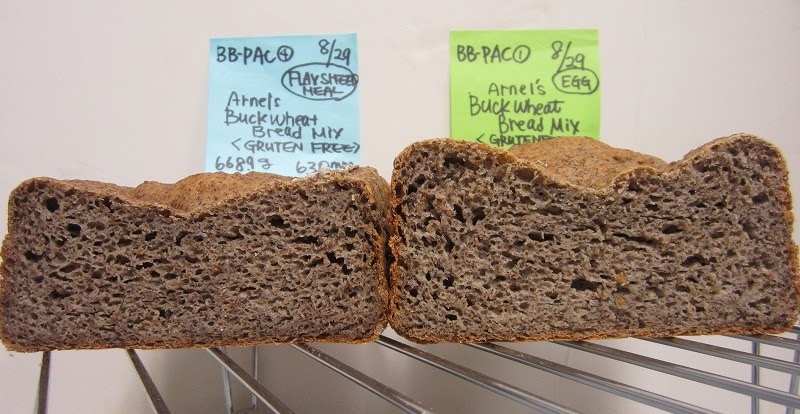 BB-PAC④ 8/29
FLAXSHEED
MEAL
Arnel's
Buckwheat
Bread Mix
<GRUTEN FREE>
BB-PAC① 8/29
EGG
Arnel's
Buckwheat
Bread Mix
<GRUTEN